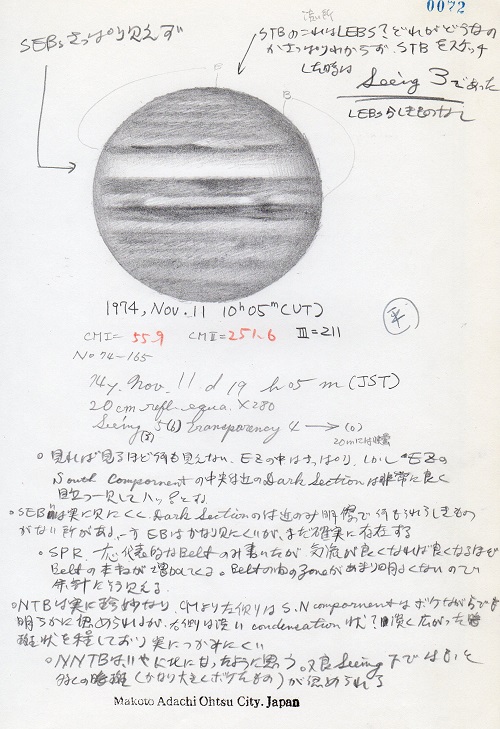 0072
SEBsさっぱり見えず
STBのこれはLEBS？どれがどうなの
かさっぱりわからず STBをスケッチ
した時は
Seeing 3であった
LEBSらしきものなし
1974, Nov. 11 10h05m(UT)
CMI= 55.9 CMII=251.6 III=211
No 74-165
74y. Nov. 11 d 19 h 05 m (JST)
20cm refl. equa. X280
Seeing 5(6) transparency 4 → (0)
(3)
20mには快曇
見れば見るほど何も見えない。EZの中はさっぱり。しかしEZの
South Componentの中央付近のDark Sectionは非常に良く
目立つ一見してハッ?とね
SEBnは実に見にくく、Dark Sectionの付近のみ明瞭で何もそれらしきもの
がない所がある。一方EBはかなり見にくいが、まだ確実に存在する
SPR 一応代表的なBeltのみ書いたが気流が良くなれば良くなるほど
Beltの本数が増加してくる。Beltの間のZoneがあまり明るくないので
余計にそう見える。
NTBは実に珍妙なり。CMより左側はS.N componentはボケながらでも
明らかに認められるが、右側は淡いcondensation状？ 淡く広がった暗
斑状を程しており実につかみにくい
NNTBはいやに北に寄ったように思う。又良Seeing下ではもっと
多くの暗斑(かなり大きくボケたもの)が認められる
Makoto Adachi Ohtsu City. Japan